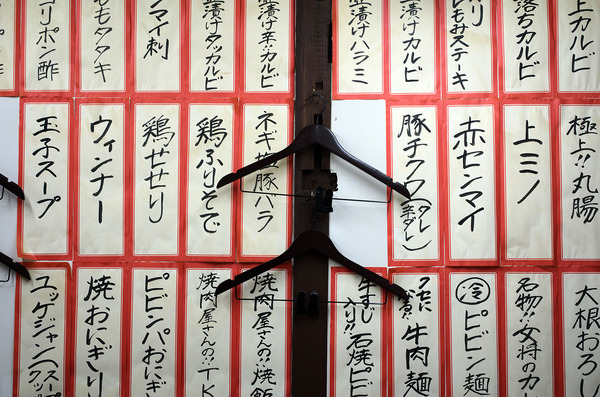 上カルビ
落ちカルビ
もみステーキ
漬けカルビ
漬けハラミ
漬け辛カルビ
漬けタッカルビ
マイ刺
ももタタキ
リポン酢
極上!!丸腸
上ミノ
赤センマイ
豚チクワ(タレ
辛ダレ)
ネギ塩豚バラ
鶏ふりそで
鶏せせり
ウィンナー
玉子スープ
大根おろし
名物!!女将のカレ
冷ピビン麺
牛肉麺
牛すじ
入り!!石焼ピビ
焼肉屋さんの…焼飯
焼肉屋さんの…TK
ピビンパおにぎ
焼おにぎり
ユッケジャン(スープ
クッパ